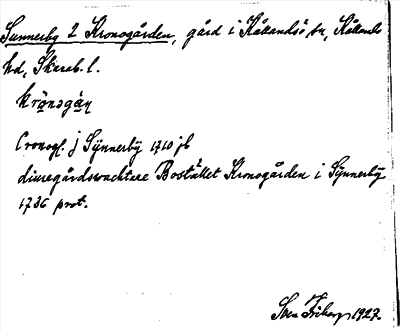 Sunnerby 2 Kronogården, gård i Kållandsö sn, Kållands
hd, Skarab. l.
krǫnǝgán
Cronogl. j Synnerby 1710 jb
diuregårdswachtare Bostället Kronogården i Synnerby
1736 prot.
Sven Friberg 1927.